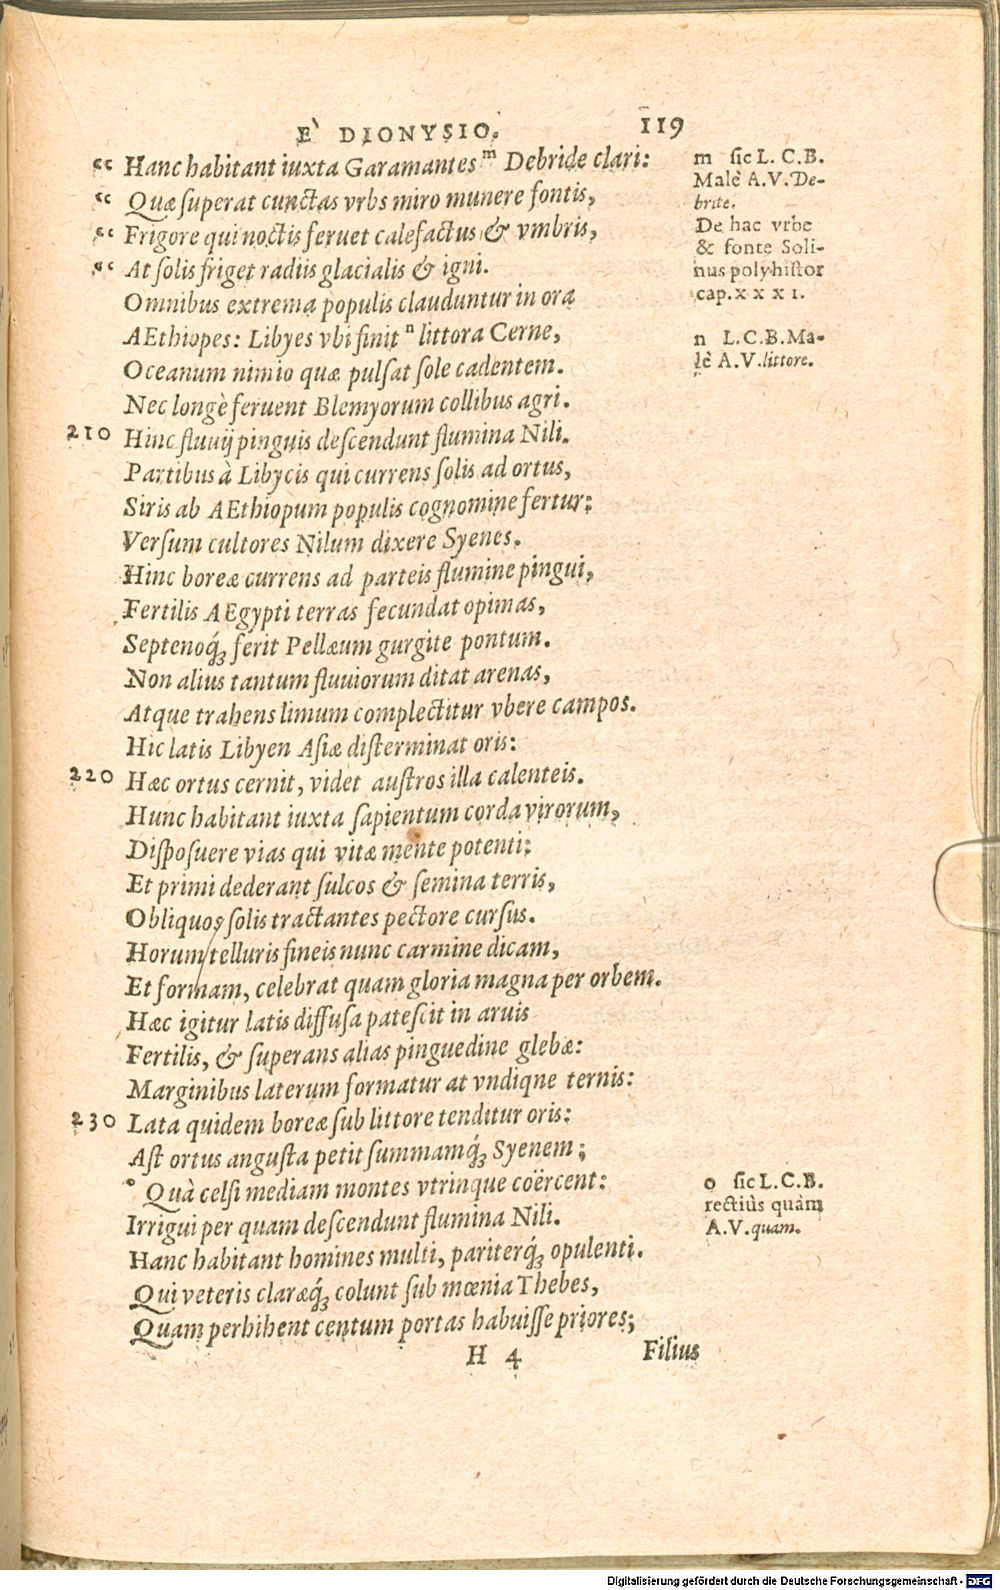 E` DIONYSIO.
119
“ Hanc habitant iuxta Garamantes ᵐ Debride clari:
“ Quæ superat cunctas vrbs miro munere fontis,
“ Frigore qui noctis feruet calefactus & vmbris,
“ At solis friget radiis glacialis & igni.
Omnibus extrema populis clauduntur in ora
AEthiopes: Libyes vbi finit ⁿ littora Cerne,
Oceanum nimio quæ pulsat sole cadentem.
Nec longè feruent Blemyorum collibus agri.
210 Hinc fluuij pinguis descendunt flumina Nili.
Partibus à Libycis qui currens solis ad ortus,
Siris ab AEthiopum populis cognomine fertur:
Versum cultores Nilum dixere Syenes.
Hinc boreæ currens ad parteis flumine pingui,
Fertilis AEgypti terras fecundat opimas,
Septenoq́ꝫ ferit Pellæum gurgite pontum.
Non alius tantum fluuiorum ditat arenas,
Atque trahens limum complectitur vbere campos.
Hic latis Libyen Asiæ disterminat oris:
220 Hæc ortus cernit, videt austros illa calenteis.
Hunc habitant iuxta sapientum corda virorum,
Disposuere vias qui vitæ mente potenti:
Et primi dederant sulcos & semina terris,
Obliquos solis tractantes pectore cursus.
Horum telluris fineis nunc carmine dicam,
Et formam, celebrat quam gloria magna per orbem.
Hæc igitur latis diffusa patescit in aruis
Fertilis, & superans alias pinguedine glebæ:
Marginibus laterum formatur at vndiqne ternis:
230 Lata quidem boreæ sub littore tenditur oris:
Ast ortus angusta petit summamq́ꝫ Syenem;
° Quà celsi mediam montes vtrinque coërcent:
Irrigui per quam descendunt flumina Nili.
Hanc habitant homines multi, pariterq́ꝫ opulenti.
Qui veteris claræq́ꝫ colunt sub mœnia Thebes,
Quam perhibent centum portas habuisse priores;
H 4
Filius
m sic L. C. B.
Malè A. V. De-
brite.
De hac vrbe
& fonte Soli-
nus polyhistor
cap. x x x i.
n L. C. B. Ma-
lè A. V. littore.
o sic L. C. B.
rectiùs quàm
A. V. quam.
Digitalisierung gefördert durch die Deutsche Forschungsgemeinschaft - DFG